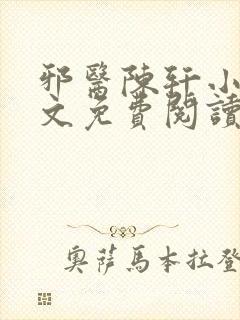 邪醫陳軒小
文免費閱讀
奧薩馬本拉登